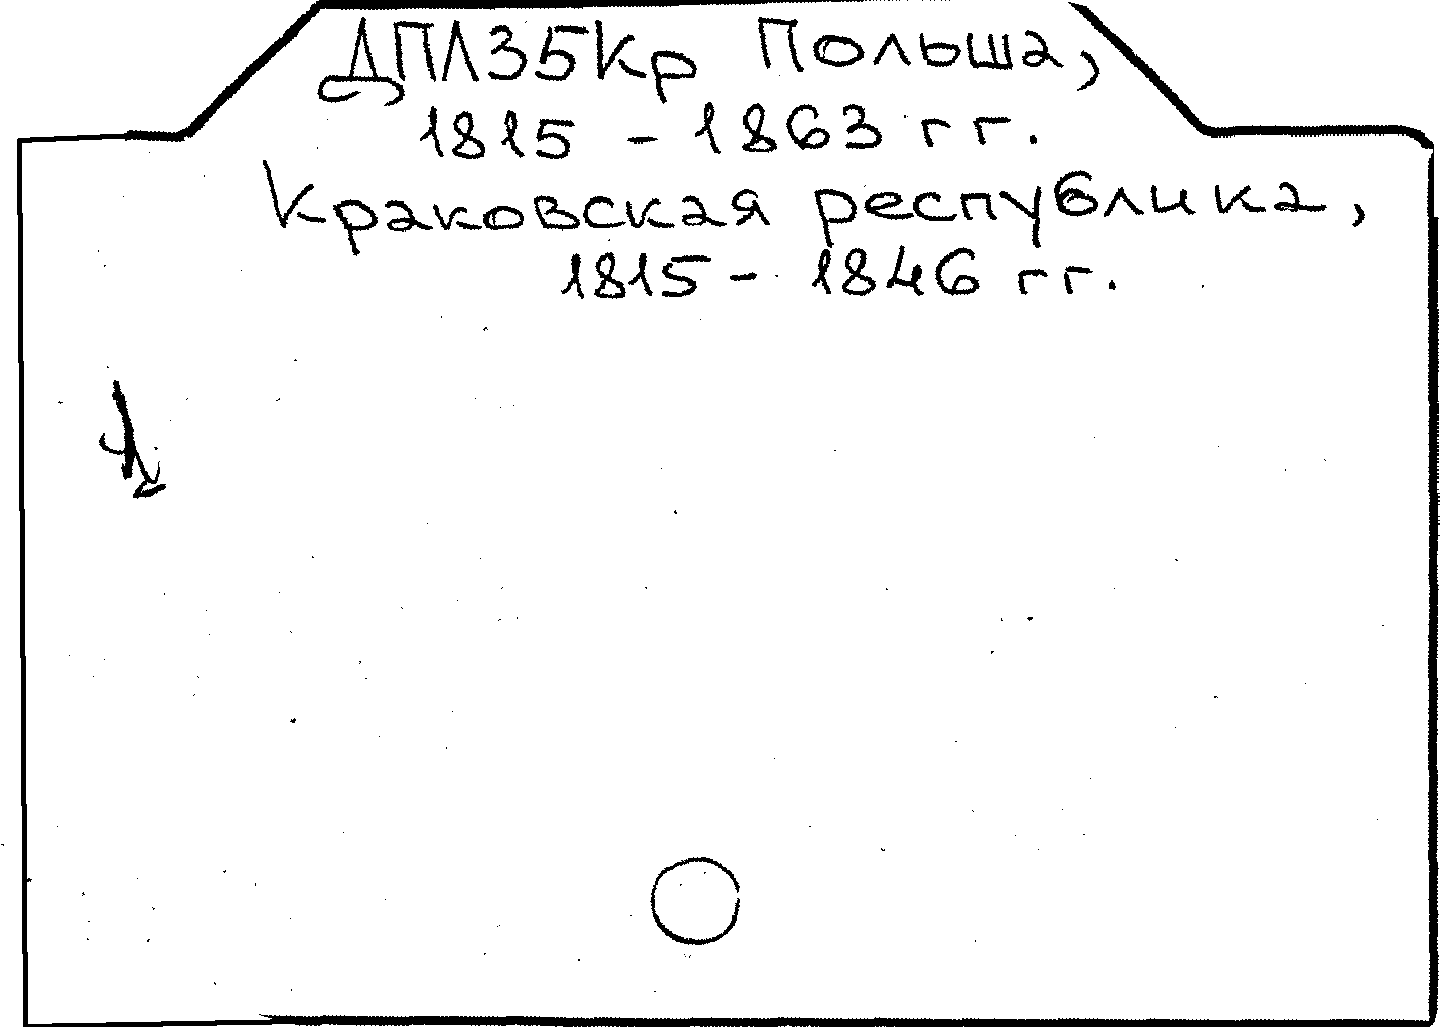 ДПЛ35Кр Польша,
1815 - 1863 гг.
Краковская республика,
1815 - 1846 гг.